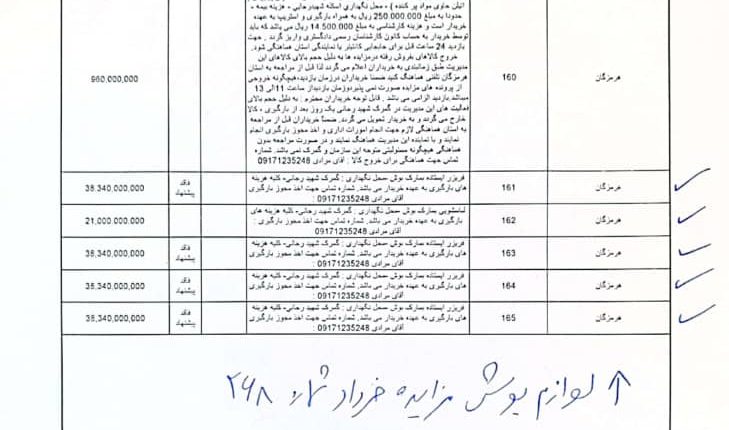 اتیلن حاوی مواد پر کننده ) - محل نگهداری اسکله شهیدرجایی - هزینه بیمه -
حدودا به مبلغ 250.000.000 ریال به همراه بارگیری و استریپ به عهده
خریدار است و هزینه کارشناسی به مبلغ 14.500.000 ریال می باشد که باید
توسط خریدار به حساب کانون کارشناسان رسمی دادگستری واریز گردد . جهت
بازدید 24 ساعت قبل برای جابجایی کانتینر با نمایندگی استان هماهنگی شود.
خروج کالاهای فروش رفته درمزایده ها به دلیل حجم بالای کالاهای این
مدیریت طبق زمانبندی به خریداران اعلام می گردد لذا قبل از مراجعه به استان
هرمزگان تلفنی هماهنگ کنید ضمنا خریداران درزمان بازدید،هیچگونه خروجی
از پرونده های مزایده صورت نمی پذیردوزمان بازدیداز ساعت 11الی 13
میباشد.بازدید الزامی می باشد . قابل توجه خریداران محترم : به دلیل حجم بالای
فعالیت های این مدیریت در گمرک شهید رجایی یک روز بعد از بارگیری ، کالا
خارج می گردند و به خریدار تحویل می گردد. ضمناً خریداران قبل از مراجعه
به استان هماهنگی لازم جهت انجام امورات اداری و اخذ مجوز بارگیری انجام
نمایند و با نماینده این مدیریت هماهنگ نمایند و در صورت مراجعه بدون
هماهنگی هیچگونه مسئولیتی متوجه این سازمان و گمرک نمی باشد. شماره
تماس جهت هماهنگی برای خروج کالا : آقای مرادی 09171235248
هرمزگان 160 960,000,000
هرمزگان 161 فریزر ایستاده بمارک بوش -محل نگهداری : گمرک شهید رجایی- کلیه هزینه فاقد 38,340,000,000
های بارگیری به عهده خریدار می باشد. شماره تماس جهت اخذ مجوز بارگیری پیشنهاد
: آقای مرادی 09171235248
هرمزگان 162 لباسشویی بمارک بوش -محل نگهداری : گمرک شهید رجایی- کلیه هزینه های 21,000,000,000
بارگیری به عهده خریدار می باشد. شماره تماس جهت اخذ مجوز بارگیری :
آقای مرادی 09171235248
هرمزگان 163 فریزر ایستاده بمارک بوش -محل نگهداری : گمرک شهید رجایی- کلیه هزینه فاقد 38,340,000,000
های بارگیری به عهده خریدار می باشد. شماره تماس جهت اخذ مجوز بارگیری پیشنهاد
: آقای مرادی 09171235248
هرمزگان 164 فریزر ایستاده بمارک بوش -محل نگهداری : گمرک شهید رجایی- کلیه هزینه فاقد 38,340,000,000
های بارگیری به عهده خریدار می باشد. شماره تماس جهت اخذ مجوز بارگیری پیشنهاد
: آقای مرادی 09171235248
هرمزگان 165 فریزر ایستاده بمارک بوش -محل نگهداری : گمرک شهید رجایی- کلیه هزینه فاقد 38,340,000,000
های بارگیری به عهده خریدار می باشد. شماره تماس جهت اخذ مجوز بارگیری پیشنهاد
: آقای مرادی 09171235248
↑ لوازم بوش مزایده خرداد شماره ۲۶۸